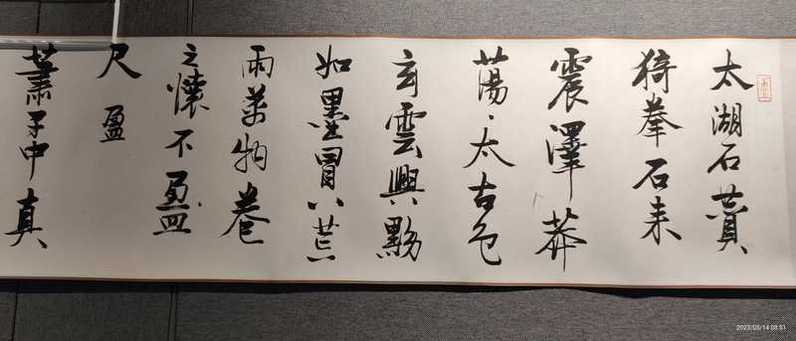 太湖石贊
猗拳石来
震澤莽
蕩々太古色
玄雲興黝
如墨冒八荒
雨萬物卷
之懷不盈
尺 盈
蕭子中真
2023/05/14 08:51